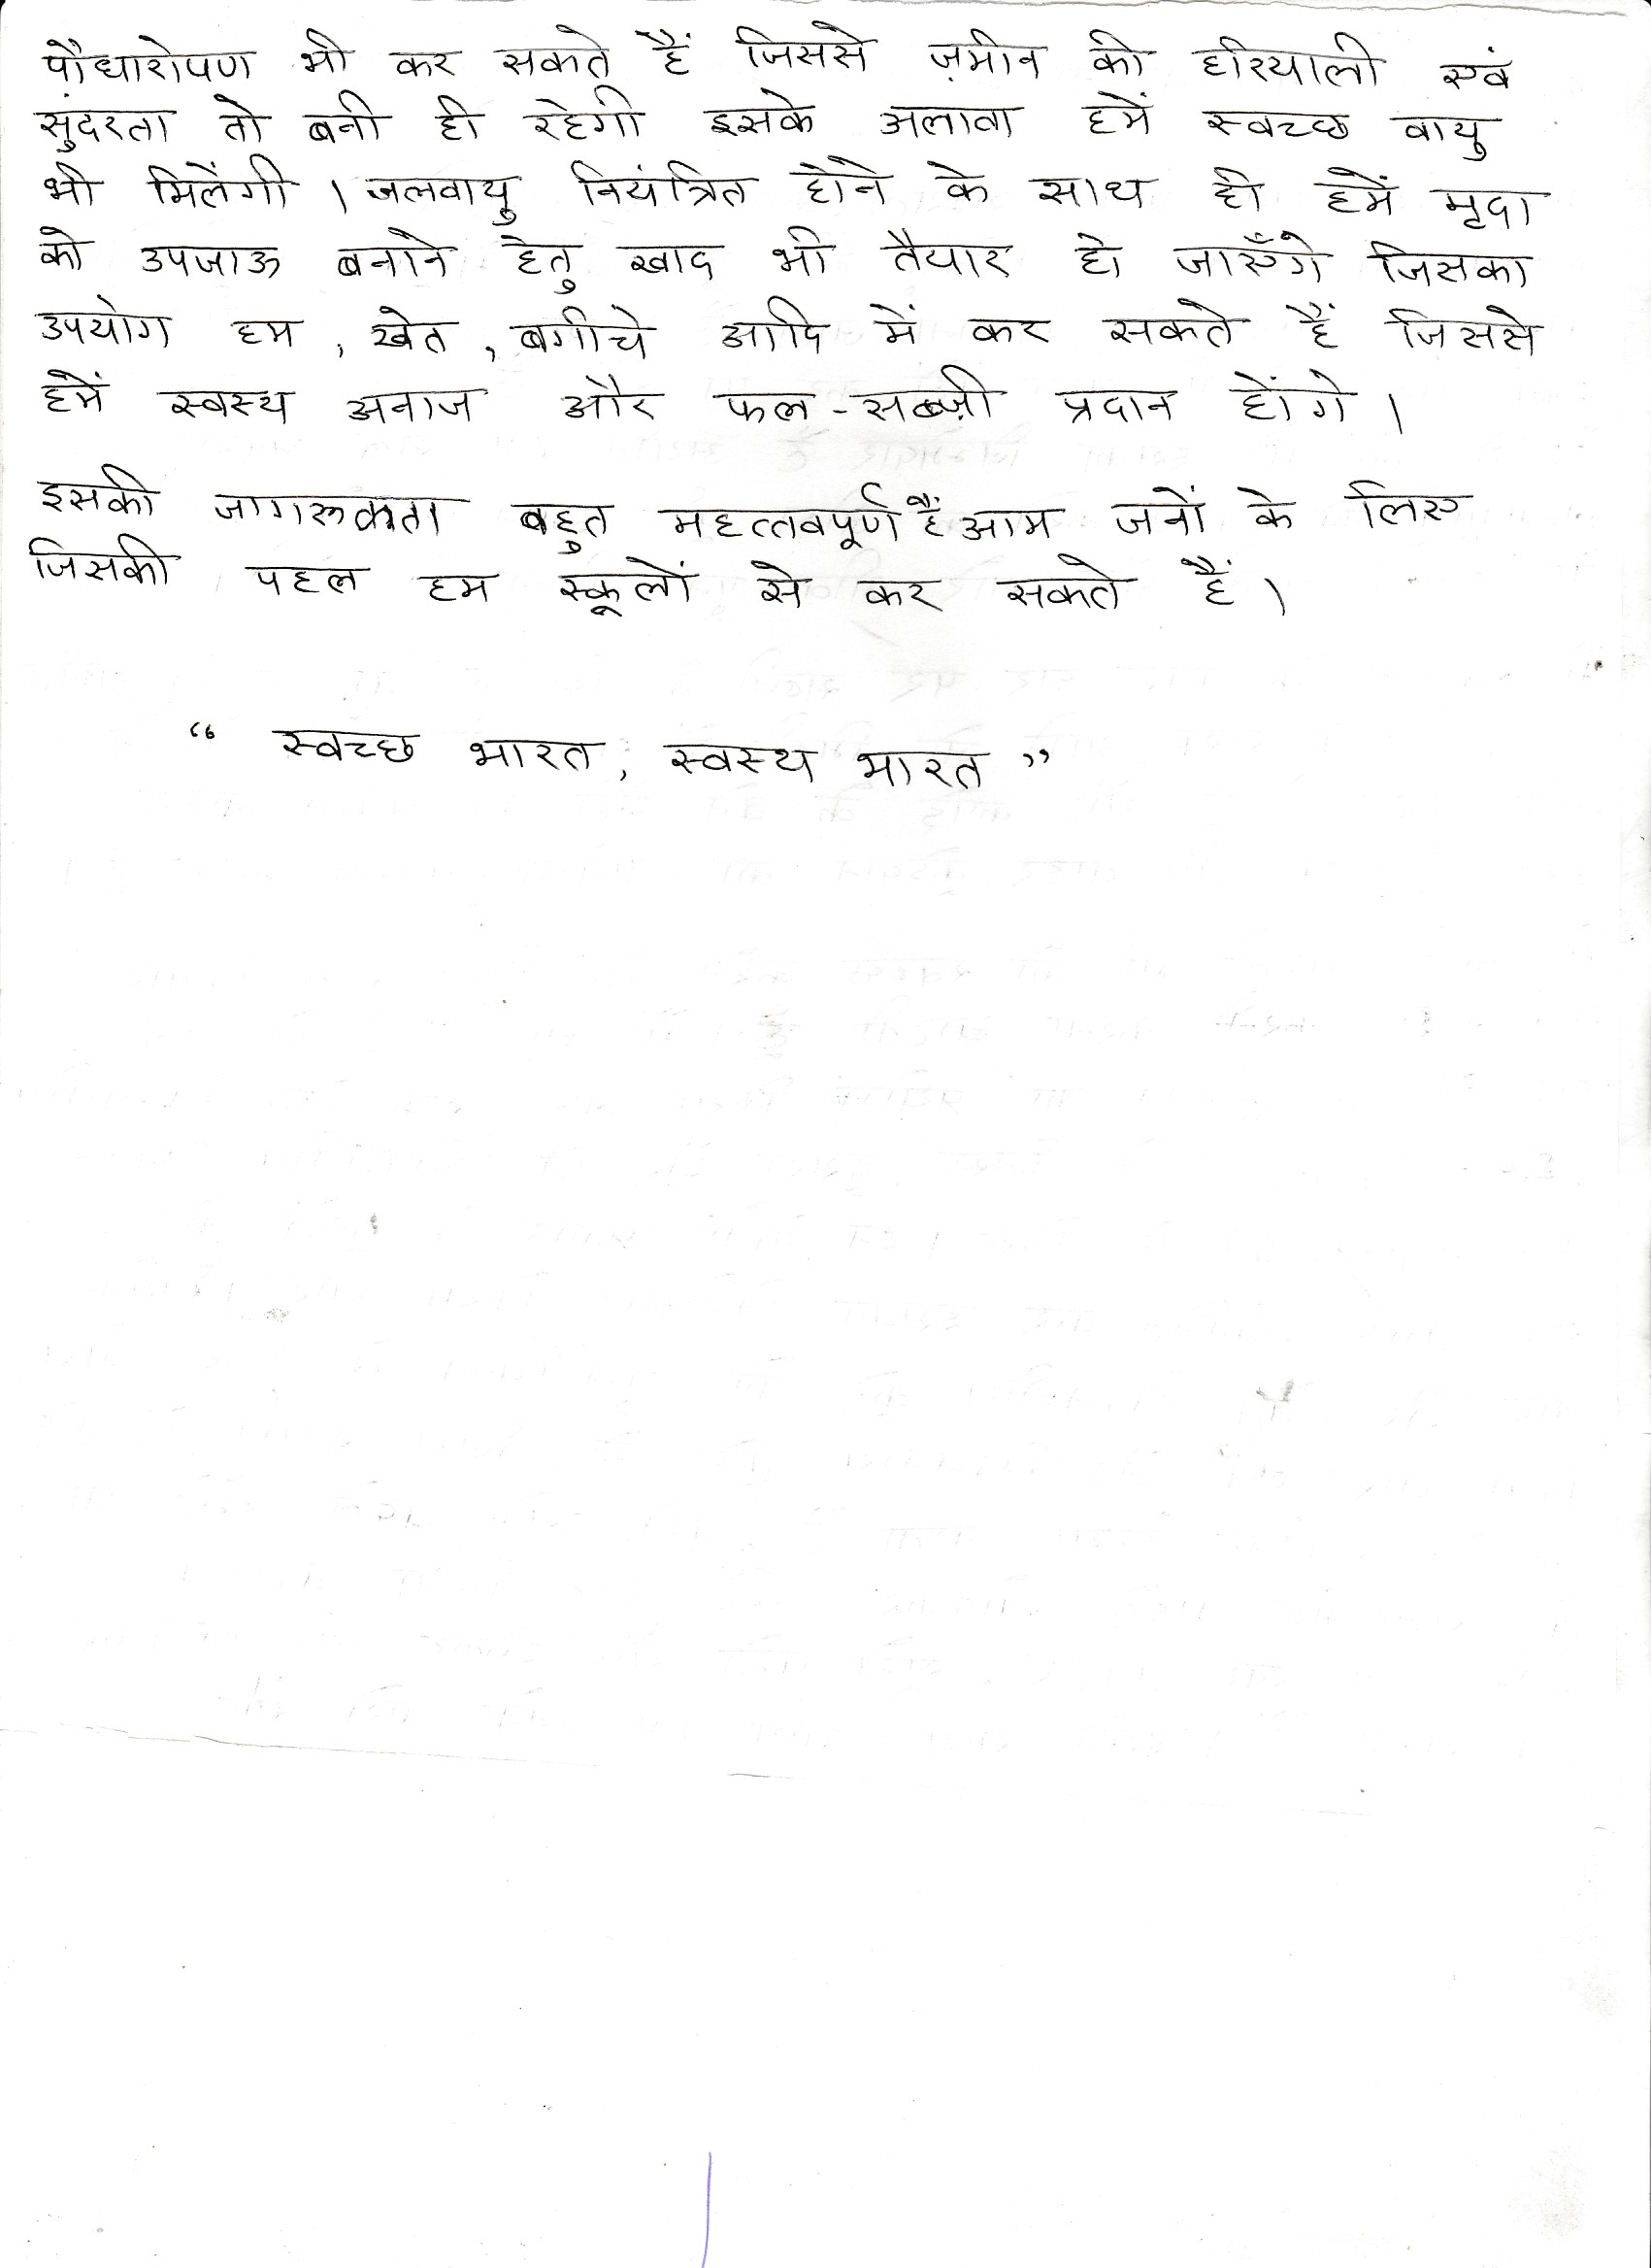 पौधारोपण भी कर सकते हैं जिससे ज़मीन की हरियाली एवं
सुंदरता तो बनी ही रहेगी इसके अलावा हमें स्वच्छ वायु
भी मिलेंगी । जलवायु नियंत्रित होने के साथ ही हमें मृदा
को उपजाऊ बनाने हेतु खाद भी तैयार हो जाएँगे जिसका
उपयोग हम , खेत , बगीचे आदि में कर सकते हैं जिससे
हमें स्वस्थ अनाज और फल-सब्ज़ी प्रदान होंगे ।
इसकी जागरूकता बहुत महत्तवपूर्ण हैं आम जनों के लिए
जिसकी पहल हम स्कूलों से कर सकते हैं ।
“ स्वच्छ भारत , स्वस्थ भारत ”